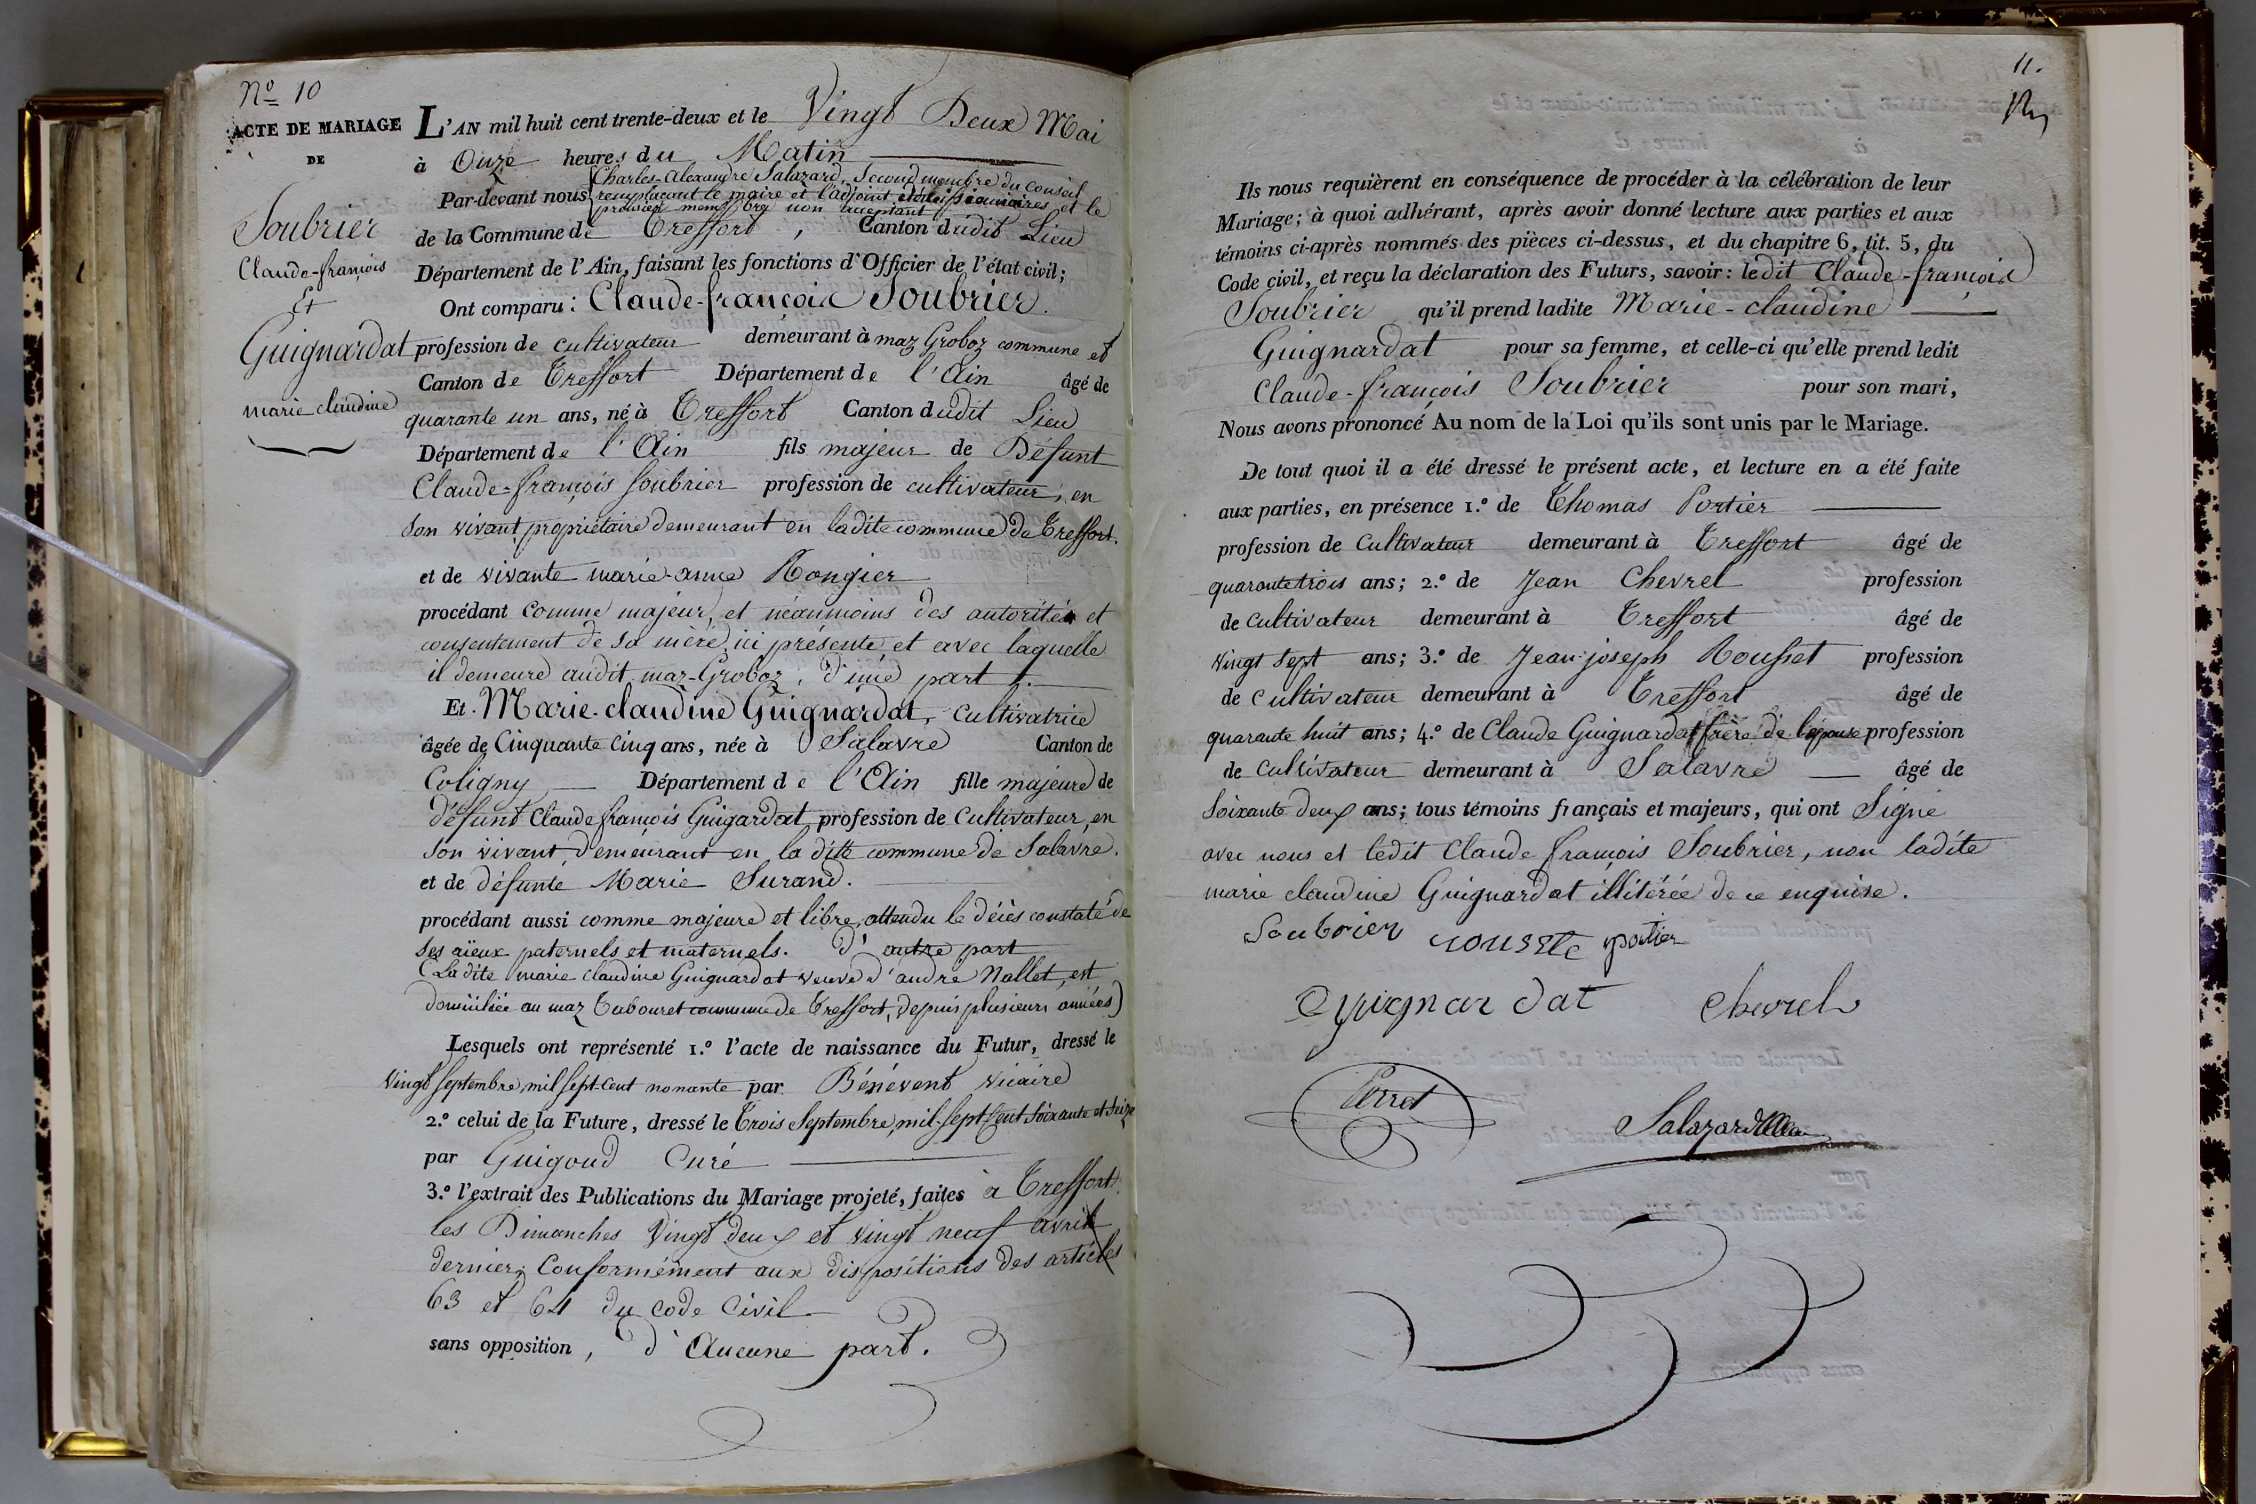 N.º 10
ACTE DE MARIAGE
DE
Soubrier
Claude-françois
Et
Guignardat
marie claudine
L'AN mil huit cent trente-deux et le Vingt Deux Mai
à Onze heures du Matin
Charles-Alexandre Salazard, Second membre du conseil
Par-devant nous remplaçant le maire et l'adjoint, démissionnaires et le
premier membre non acceptant
de la Commune de Treffort, Canton dudit Lieu
Département de l'Ain, faisant les fonctions d'Officier de l'état civil;
Ont comparu: Claude-françois Soubrier.
profession de cultivateur demeurant à maz Groboz commune et
Canton de Treffort Département de l'Ain âgé de
quarante un ans, né à Treffort Canton dudit Lieu
Département de l'Ain fils majeur de Défunt
Claude-françois Soubrier profession de cultivateur, en
son vivant propriétaire demeurant en ladite commune de Treffort.
et de vivante marie-anne Rongier
procédant comme majeur, et néanmoins des autorités et
consentement de sa mère ici présente, et avec laquelle
il demeure audit maz-Groboz, d'une part
Et Marie-claudine Guignardat, Cultivatrice
âgée de Cinquante Cinq ans, née à Salavre Canton de
Coligny Département de l'Ain fille majeure de
défunt Claude françois Guigardat profession de Cultivateur, en
son vivant demeurant en la dite commune de Salavre.
et de défunte Marie Surand.
procédant aussi comme majeure et libre, attendu le décès constaté de
ses aïeux paternels et maternels. D'autre part
(La dite marie claudine Guignardat veuve d'andré Nallet, est
domiciliée au maz Tabouret commune de Treffort, depuis plusieurs années)
Lesquels ont représenté 1.º l'acte de naissance du Futur, dressé le
vingt septembre mil sept-cent nonante par Bénévent vicaire
2.º celui de la Future, dressé le Trois Septembre mil-sept-Cent Soixante et Seize
par Guigoud Curé
3.º l'extrait des Publications du Mariage projeté, faites à Treffort
les Dimanches Vingt deux et vingt neuf avril
dernier; Conformément aux dispositions des articles
63 et 64 du code Civil
sans opposition, d'aucune part.
11.
Ils nous requièrent en conséquence de procéder à la célébration de leur
Mariage; à quoi adhérant, après avoir donné lecture aux parties et aux
témoins ci-après nommés des pièces ci-dessus, et du chapitre 6, tit. 5, du
Code civil, et reçu la déclaration des Futurs, savoir: ledit Claude-françois
Soubrier qu'il prend ladite Marie-claudine
Guignardat pour sa femme, et celle-ci qu'elle prend ledit
Claude-françois Soubrier pour son mari,
Nous avons prononcé Au nom de la Loi qu'ils sont unis par le Mariage.
De tout quoi il a été dressé le présent acte, et lecture en a été faite
aux parties, en présence 1.º de Thomas Portier
profession de Cultivateur demeurant à Treffort âgé de
quarante trois ans; 2.º de Jean Chevrel profession
de cultivateur demeurant à Treffort âgé de
vingt sept ans; 3.º de Jean-joseph Rousset profession
de cultivateur demeurant à Treffort âgé de
quarante huit ans; 4.º de Claude Guignardat frère de l'épouse profession
de Cultivateur demeurant à Salavre âgé de
Soixante deux ans; tous témoins français et majeurs, qui ont Signé
avec nous et ledit Claude françois Soubrier, non ladite
marie claudine Guignardat illitérée de ce enquise.
Soubrier rousete portier
Guignardat Chevrel
Perret
Salazard